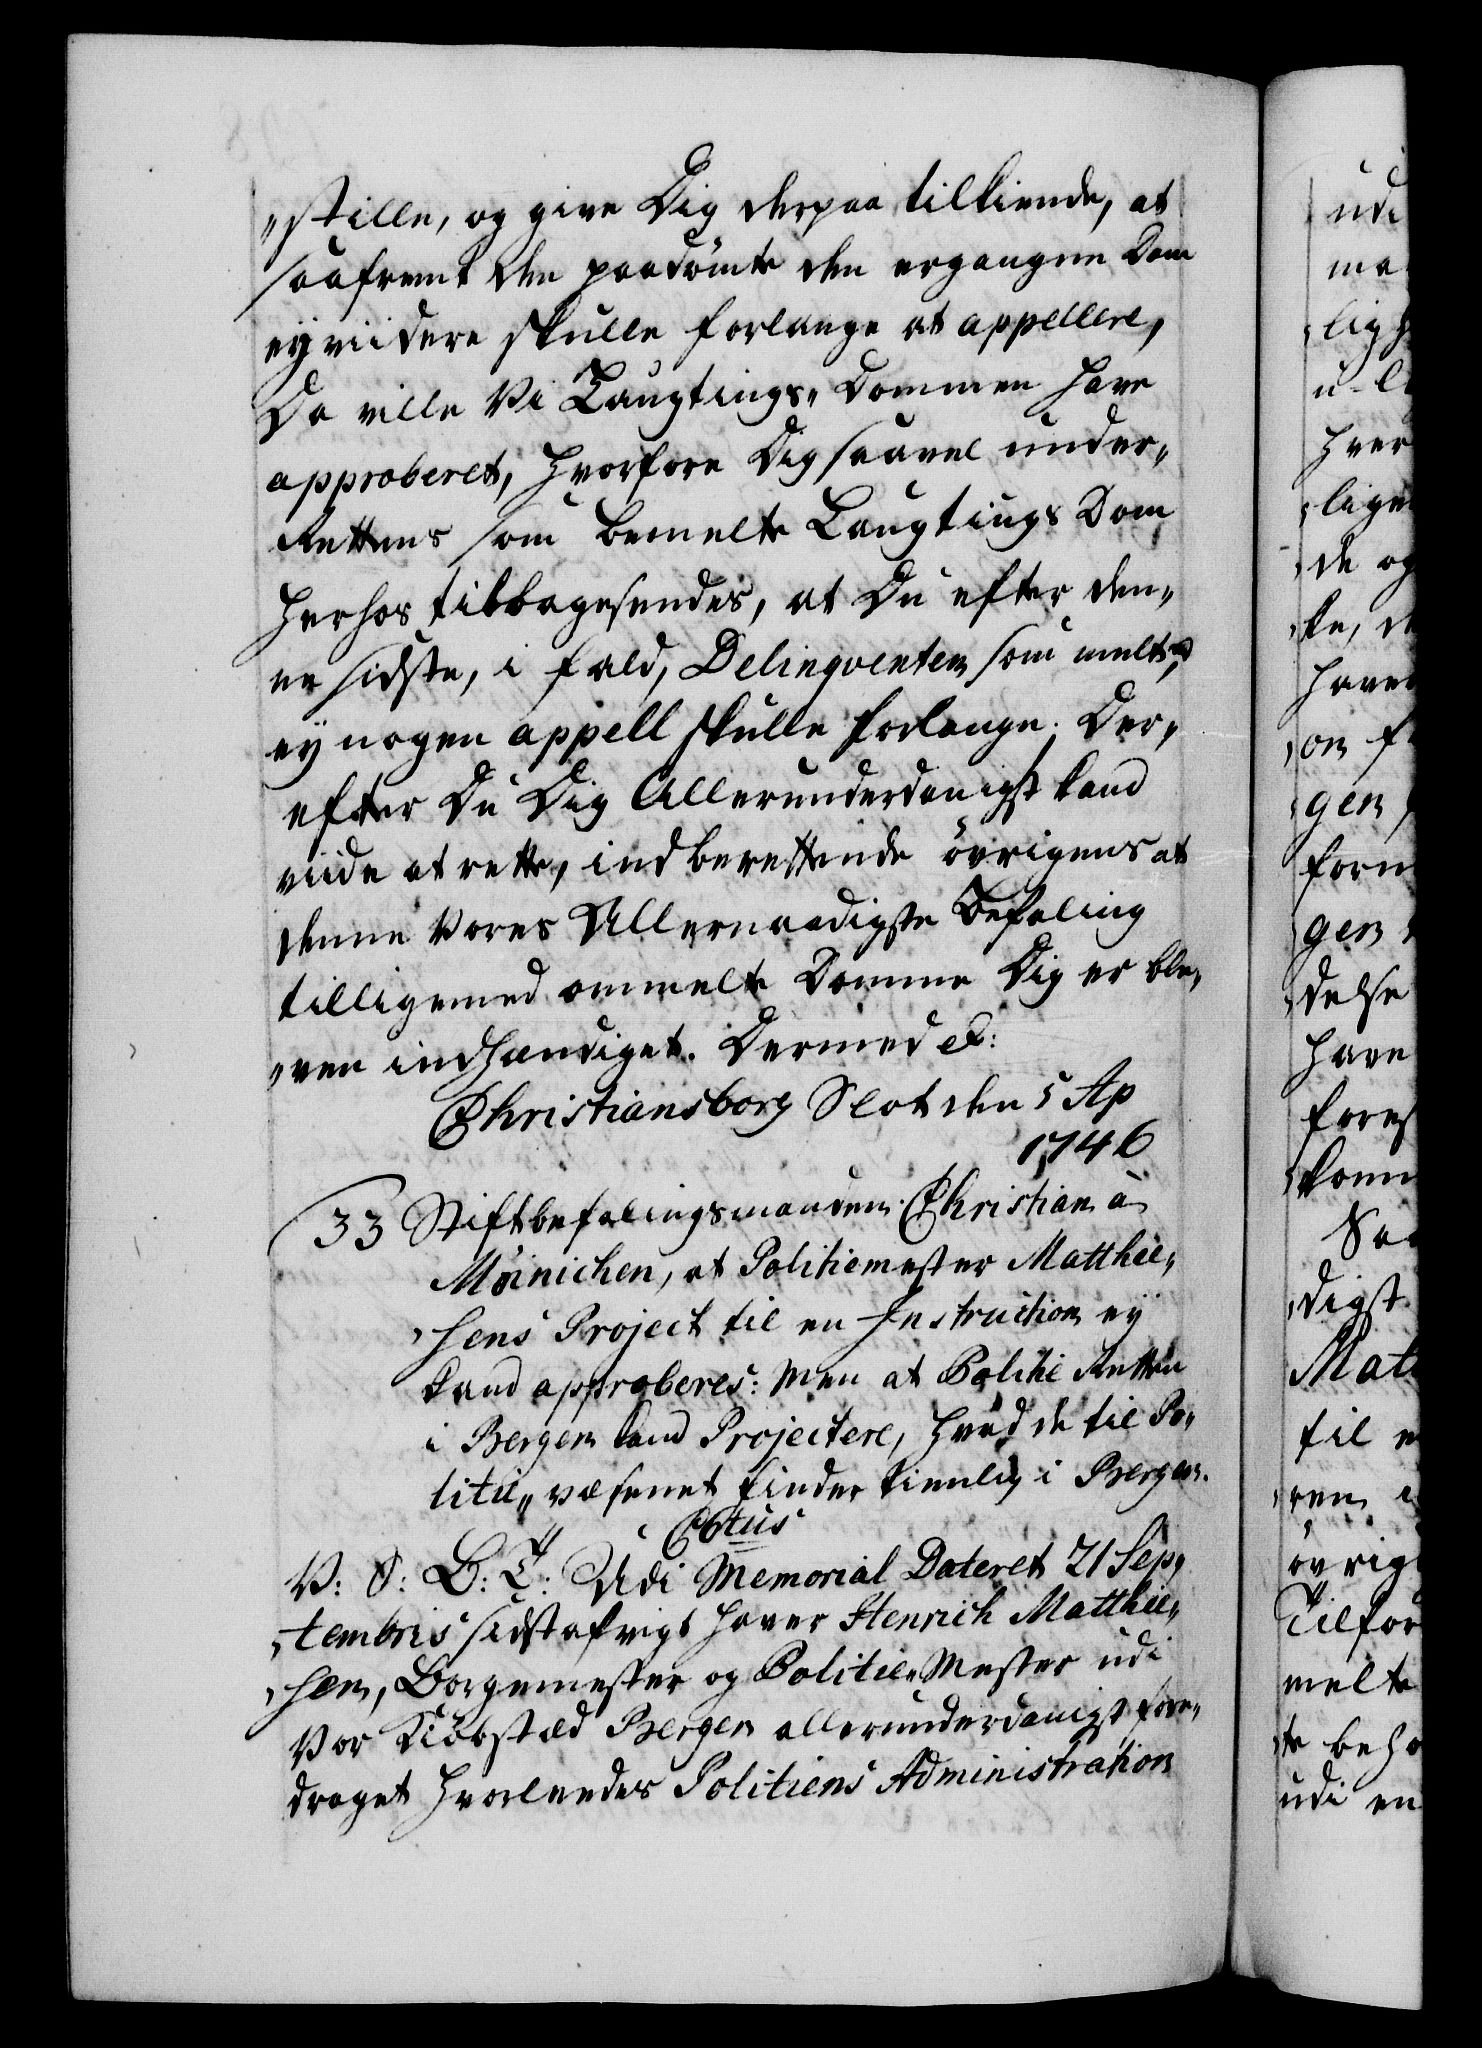 „stille, og give Dig derpaa tilkiende, at
saafremt den paadömte den ergangne Dom
eÿ viidere skulle forlange at appellere,
Da ville Vi Laugtings„ Dommen have
approberet, hvorfore Dig saavel under„
Rettens som bemelte Laugtings Dom
herhos tilbagesendes, at Du efter den„
ne sidste, i fald, Delinqventen som melt,
eÿ nogen appell skulle forlange. Der„
efter Du Dig Allerunderdanigst kand
viide at rette, indberettende övrigens at
denne Vores Allernaadigste Befaling
tilligemed ommelte Domme Dig er ble„
„ven indhændiget. Dermed &:
Christiansborg Slot den 5 Ap
1746
33 Stiftbefalingsmanden Christian à
Möinichen, at Politiemester Matthie„
„sens Project til en Instruction eÿ
kand approberes: Men at Politie Retten
i Bergen kand Projectere, hvad de til Po„
litie„ væsenet finder tienlig i Bergen.
C6tus
V: S: G: T: Udi Memorial Dateret 21 Sep„
„tembris sidstafvigt haver Henrich Matthie„
„sen, Borgemester og Politie„Mester udi
Vor Kiöbstæd Bergen allerunderdanigst fore„
draget hvorledes Politiens Administration
udi
ma
lig
hver
lige
de og
ke, d
have
on f
gen
form
gen
delse
have
fores
kom
Saa
digst
Mat
til e
ren
övrig
Tilfor
melte
te beho
udi en